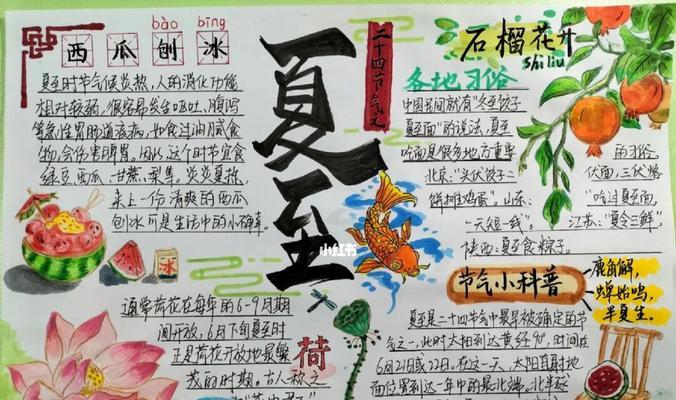 bào bīng
西瓜刨冰
夏至时节气候炎热，人的消化功能
相对较弱，很容易发生呕吐、腹泻
等急性胃肠道疾病，如食过油腻食
物，会伤害脾胃。因此，这个时节宜食
绿豆、西瓜、甘蔗、梨等，炎炎夏热，
来上一份清爽的西瓜
刨冰可是生活中的小确幸。
冰
二十四节气之
夏至
小红书
石榴花开
shí liu
各地习俗
中国民间就有“冬至饺子
夏至面”的说法，夏至
吃面是很多地方重要的习俗
北京：“头伏饺子二伏面，三伏烙
饼摊鸡蛋”。山东：“吃过夏至面，
一天短一线”。江苏：“夏令三鲜”
陕西：夏至食粽子。
节气小科普
鹿角解，
蝉始鸣，
半夏生。
夏至是二十四节气中最早被确定的节
气之一，此时太阳到达黄经90°，时间在
6月21或22日。在这一天，太阳直射地
面位置到达一年中的最北端。北半球
通常荷花在每年的6-9月期
间开放，6月下旬夏至时
正是荷花开放地最繁
茂的时期。古人称之
荷